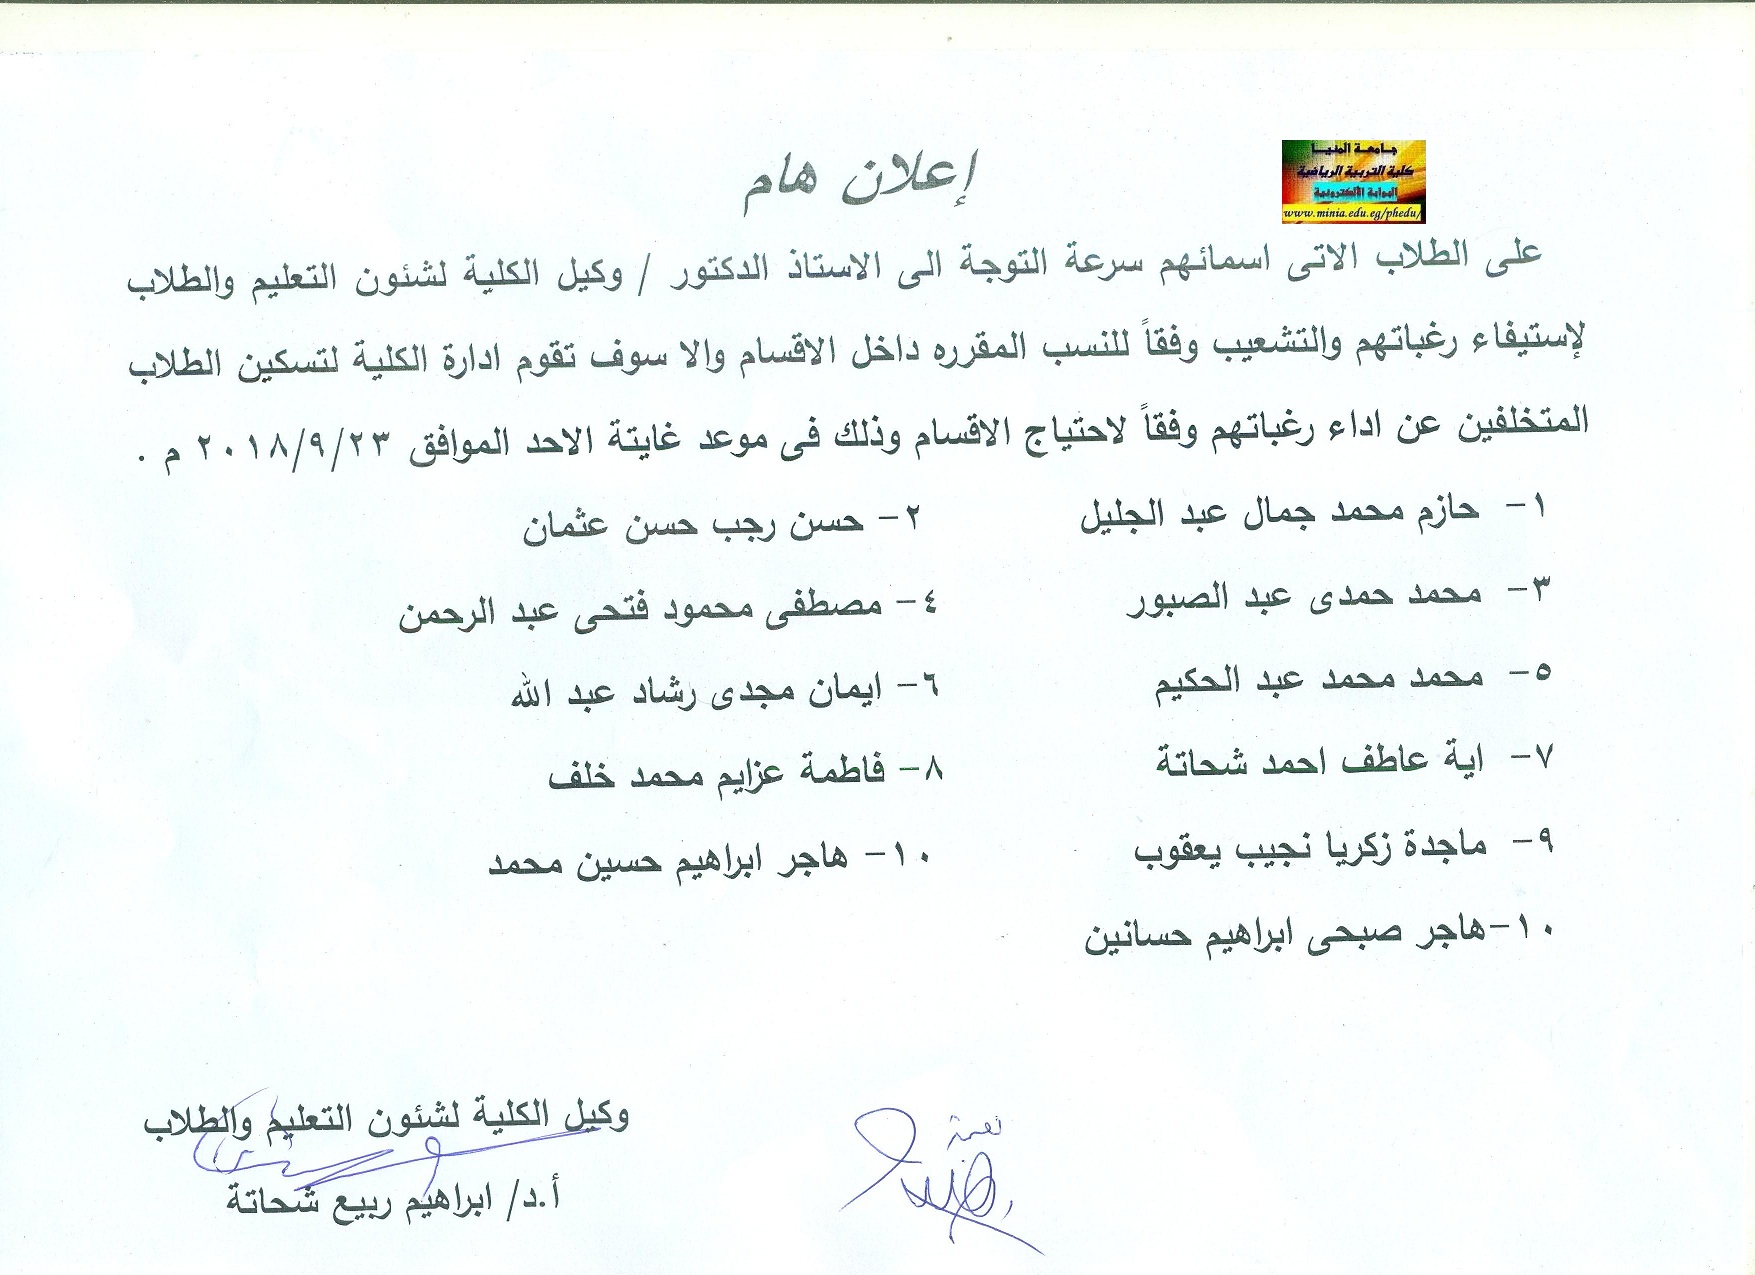 إعلان هام
جامعة المنيا
كلية التربية الرياضية
البوابة الألكترونية
www.minia.edu.eg/phedu/
على الطلاب الاتى اسمائهم سرعة التوجة الى الاستاذ الدكتور / وكيل الكلية لشئون التعليم والطلاب
لإستيفاء رغباتهم والتشعيب وفقاً للنسب المقرره داخل الاقسام والا سوف تقوم ادارة الكلية لتسكين الطلاب
المتخلفين عن اداء رغباتهم وفقاً لاحتياج الاقسام وذلك فى موعد غايتة الاحد الموافق ٢٠١٨/٩/٢٣ م .
١- حازم محمد جمال عبد الجليل ٢- حسن رجب حسن عثمان
٣- محمد حمدى عبد الصبور ٤- مصطفى محمود فتحى عبد الرحمن
٥- محمد محمد عبد الحكيم ٦- ايمان مجدى رشاد عبد الله
٧- اية عاطف احمد شحاتة ٨- فاطمة عزايم محمد خلف
٩- ماجدة زكريا نجيب يعقوب ١٠- هاجر ابراهيم حسين محمد
١٠-هاجر صبحى ابراهيم حسانين
وكيل الكلية لشئون التعليم والطلاب
أ.د/ ابراهيم ربيع شحاتة